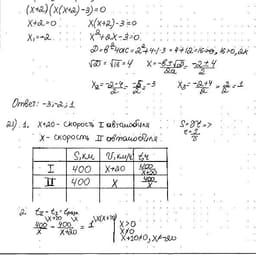 (x+2)(x(x+2)-3)=0
x+2=0 x(x+2)-3=0
x₁=-2. x²+2x-3=0
D=b²-4ac=2²+4·1·3=4+12=16>0, 2x
√D=√16=4 x=(-b±√D)/2a=(-2±4)/2
x₂=(-2-4)/2=-6/2=-3 x₃=(-2+4)/2=2/2=1
Ответ: -3;-2;1
21) 1. x+20- скорость I автомобиля
x- скорость II автомобиля.
S=vt =>
t=S/v
S,км V,км/ч t,ч
I 400 x+20 400/(x+20)
II 400 x 400/x
2.
400/x - 400/(x+20) = 1 x>0
x≠0
x+20≠0, x≠-20